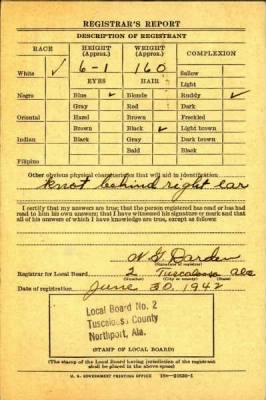 REGISTRAR'S REPORT
DESCRIPTION OF REGISTRANT
RACE HEIGHT (Approx.) WEIGHT (Approx.) COMPLEXION
White ✓ 6-1 160 Sallow
EYES HAIR Light
Negro Blue ✓ Blonde Ruddy ✓
Gray Red Dark
Oriental Hazel Brown Freckled
Brown Black ✓ Light brown
Indian Black Gray Dark brown
Bald Black
Filipino
Other obvious physical characteristics that will aid in identification
Knot behind right ear
I certify that my answers are true; that the person registered has read or has
had read to him his own answers; that I have witnessed his signature or mark and that
all of his answers of which I have knowledge are true, except as follows:
W G Darden
(Signature of registrar)
Registrar for Local Board 2 Tuscaloosa Ala
(Number) (City or county) (State)
Date of registration June 30, 1942
Local Board No. 2
Tuscaloosa County
Northport, Ala.
(STAMP OF LOCAL BOARD)
(The stamp of the Local Board having jurisdiction of the registrant
shall be placed in the above space.)
U. S. GOVERNMENT PRINTING OFFICE